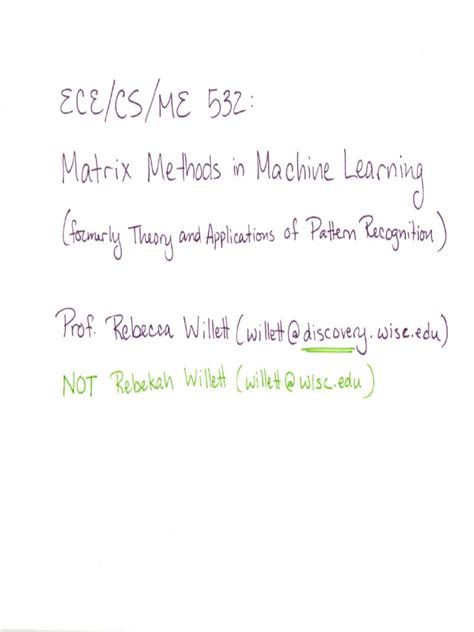 ECE/CS/ME 532:
Matrix Methods in Machine Learning
(formerly Theory and Applications of Pattern Recognition)
Prof. Rebecca Willett (willett@discovery.wisc.edu)
NOT Rebekah Willett (willett@wisc.edu)